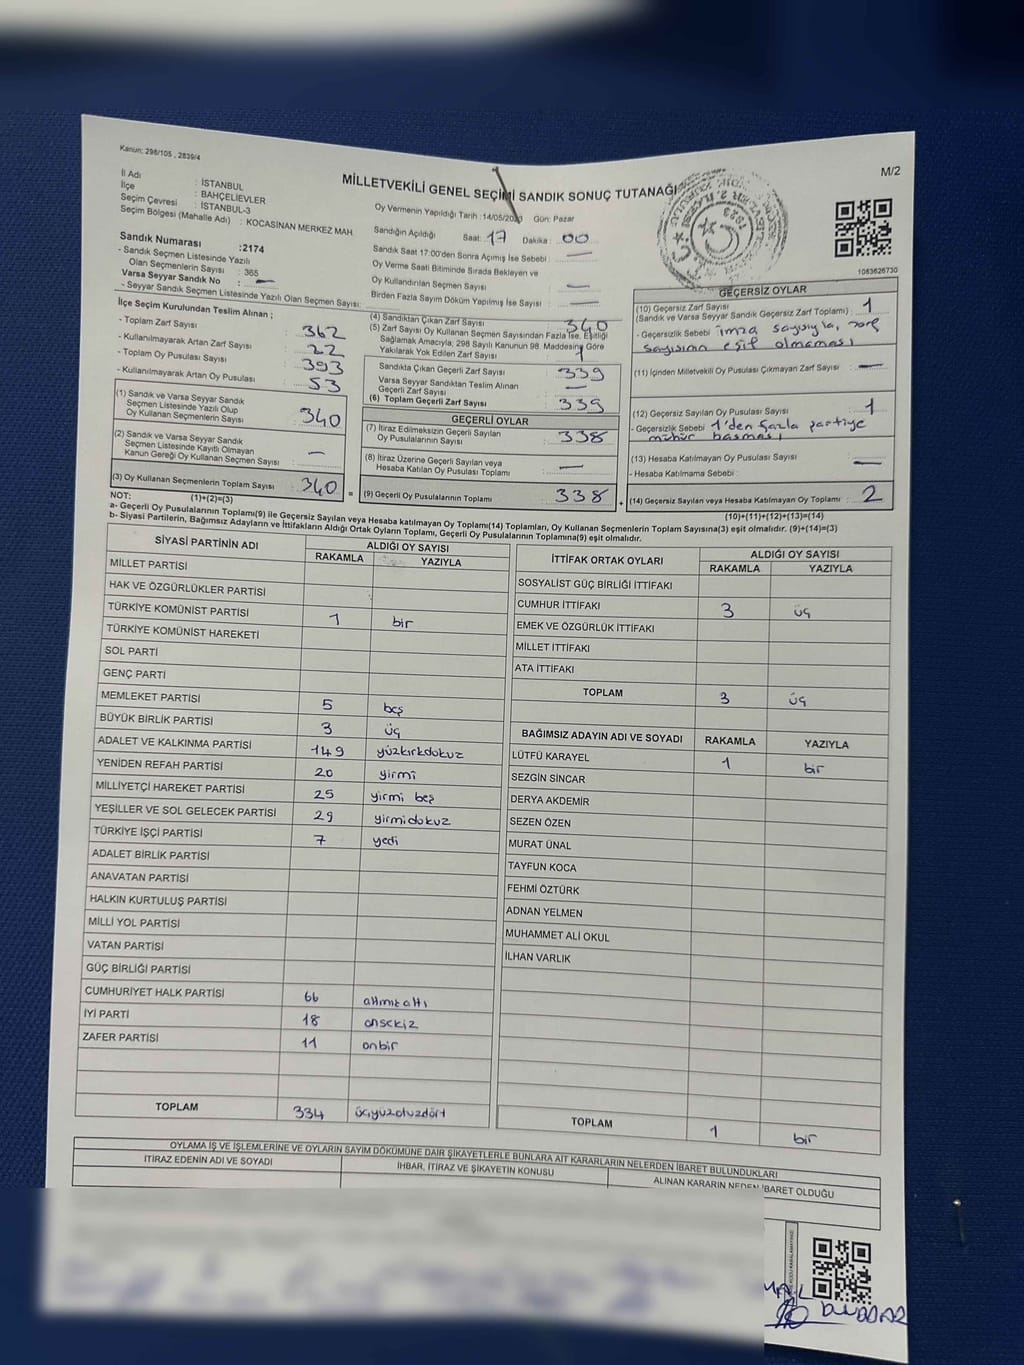 Kanun: 298/105 , 2839/4
M/2
MİLLETVEKİLİ GENEL SEÇİMİ SANDIK SONUÇ TUTANAĞI
İl Adı : İSTANBUL
İlçe : BAHÇELİEVLER
Seçim Çevresi : İSTANBUL-3
Seçim Bölgesi (Mahalle Adı) : KOCASİNAN MERKEZ MAH
Sandık Numarası :2174
- Sandık Seçmen Listesinde Yazılı
Olan Seçmenlerin Sayısı : 365
Varsa Seyyar Sandık No : —
- Seyyar Sandık Seçmen Listesinde Yazılı Olan Seçmen Sayısı:
Oy Vermenin Yapıldığı Tarih :14/05/2023 Gün: Pazar
Sandığın Açıldığı Saat: 17 Dakika : 00
Sandık Saat 17:00'den Sonra Açılmış İse Sebebi : —
Oy Verme Saati Bitiminde Sırada Bekleyen ve
Oy Kullandırılan Seçmen Sayısı : —
Birden Fazla Sayım Döküm Yapılmış İse Sayısı : —
1063626730
İlçe Seçim Kurulundan Teslim Alınan ;
- Toplam Zarf Sayısı : 362
- Kullanılmayarak Artan Zarf Sayısı : 22
- Toplam Oy Pusulası Sayısı : 393
- Kullanılmayarak Artan Oy Pusulası : 53
(1) Sandık ve Varsa Seyyar Sandık
Seçmen Listesinde Yazılı Olup
Oy Kullanan Seçmenlerin Sayısı : 340
(2) Sandık ve Varsa Seyyar Sandık
Seçmen Listesinde Kayıtlı Olmayan
Kanun Gereği Oy Kullanan Seçmen Sayısı : —
(3) Oy Kullanan Seçmenlerin Toplam Sayısı : 340
(1)+(2)=(3)
(4) Sandıktan Çıkan Zarf Sayısı : 340
(5) Zarf Sayısı Oy Kullanan Seçmen Sayısından Fazla İse, Eşitliği
Sağlamak Amacıyla, 298 Sayılı Kanunun 98. Maddesine Göre
Yakılarak Yok Edilen Zarf Sayısı : 1
Sandıkta Çıkan Geçerli Zarf Sayısı : 339
Varsa Seyyar Sandıktan Teslim Alınan
Geçerli Zarf Sayısı : —
(6) Toplam Geçerli Zarf Sayısı : 339
GEÇERLİ OYLAR
(7) İtiraz Edilmeksizin Geçerli Sayılan
Oy Pusulalarının Sayısı : 338
(8) İtiraz Üzerine Geçerli Sayılan veya
Hesaba Katılan Oy Pusulası Toplamı : —
= (9) Geçerli Oy Pusulalarının Toplamı : 338 +
GEÇERSİZ OYLAR
(10) Geçersiz Zarf Sayısı
(Sandık ve Varsa Seyyar Sandık Geçersiz Zarf Toplamı) : 1
- Geçersizlik Sebebi : imza sayısıyla, zarf
sayısının eşit olmaması
(11) İçinden Milletvekili Oy Pusulası Çıkmayan Zarf Sayısı : —
(12) Geçersiz Sayılan Oy Pusulası Sayısı : 1
- Geçersizlik Sebebi : 1'den fazla partiye
mühür basması
(13) Hesaba Katılmayan Oy Pusulası Sayısı : —
- Hesaba Katılmama Sebebi :
(14) Geçersiz Sayılan veya Hesaba Katılmayan Oy Toplamı : 2
(10)+(11)+(12)+(13)=(14)
NOT:
a- Geçerli Oy Pusulalarının Toplamı(9) ile Geçersiz Sayılan veya Hesaba katılmayan Oy Toplamı(14) Toplamları, Oy Kullanan Seçmenlerin Toplam Sayısına(3) eşit olmalıdır. (9)+(14)=(3)
b- Siyasi Partilerin, Bağımsız Adayların ve İttifakların Aldığı Ortak Oyların Toplamı, Geçerli Oy Pusulalarının Toplamına(9) eşit olmalıdır.
SİYASİ PARTİNİN ADI ALDIĞI OY SAYISI
RAKAMLA YAZIYLA
MİLLET PARTİSİ
HAK VE ÖZGÜRLÜKLER PARTİSİ
TÜRKİYE KOMÜNİST PARTİSİ 1 bir
TÜRKİYE KOMÜNİST HAREKETİ
SOL PARTİ
GENÇ PARTİ
MEMLEKET PARTİSİ 5 beş
BÜYÜK BİRLİK PARTİSİ 3 üç
ADALET VE KALKINMA PARTİSİ 149 yüzkırkdokuz
YENİDEN REFAH PARTİSİ 20 yirmi
MİLLİYETÇİ HAREKET PARTİSİ 25 yirmi beş
YEŞİLLER VE SOL GELECEK PARTİSİ 29 yirmidokuz
TÜRKİYE İŞÇİ PARTİSİ 7 yedi
ADALET BİRLİK PARTİSİ
ANAVATAN PARTİSİ
HALKIN KURTULUŞ PARTİSİ
MİLLİ YOL PARTİSİ
VATAN PARTİSİ
GÜÇ BİRLİĞİ PARTİSİ
CUMHURİYET HALK PARTİSİ 66 altmışaltı
İYİ PARTİ 18 onsekiz
ZAFER PARTİSİ 11 onbir
TOPLAM 334 üçyüzotuzdört
İTTİFAK ORTAK OYLARI ALDIĞI OY SAYISI
RAKAMLA YAZIYLA
SOSYALİST GÜÇ BİRLİĞİ İTTİFAKI
CUMHUR İTTİFAKI 3 üç
EMEK VE ÖZGÜRLÜK İTTİFAKI
MİLLET İTTİFAKI
ATA İTTİFAKI
TOPLAM 3 üç
BAĞIMSIZ ADAYIN ADI VE SOYADI RAKAMLA YAZIYLA
LÜTFÜ KARAYEL 1 bir
SEZGİN SİNCAR
DERYA AKDEMİR
SEZEN ÖZEN
MURAT ÜNAL
TAYFUN KOCA
FEHMİ ÖZTÜRK
ADNAN YELMEN
MUHAMMET ALİ OKUL
İLHAN VARLIK
TOPLAM 1 bir
OYLAMA İŞ VE İŞLEMLERİNE VE OYLARIN SAYIM DÖKÜMÜNE DAİR ŞİKAYETLERLE BUNLARA AİT KARARLARIN NELERDEN İBARET BULUNDUKLARI
İTİRAZ EDENİN ADI VE SOYADI İHBAR, İTİRAZ VE ŞİKAYETİN KONUSU ALINAN KARARIN NEDEN İBARET OLDUĞU